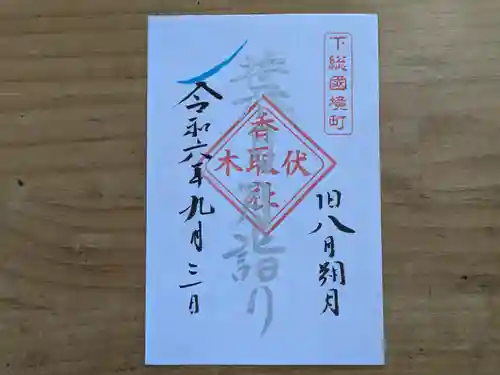 下総國境町
旧八月朔月
葉月詣り
伏木
香取社
令和六年九月三日